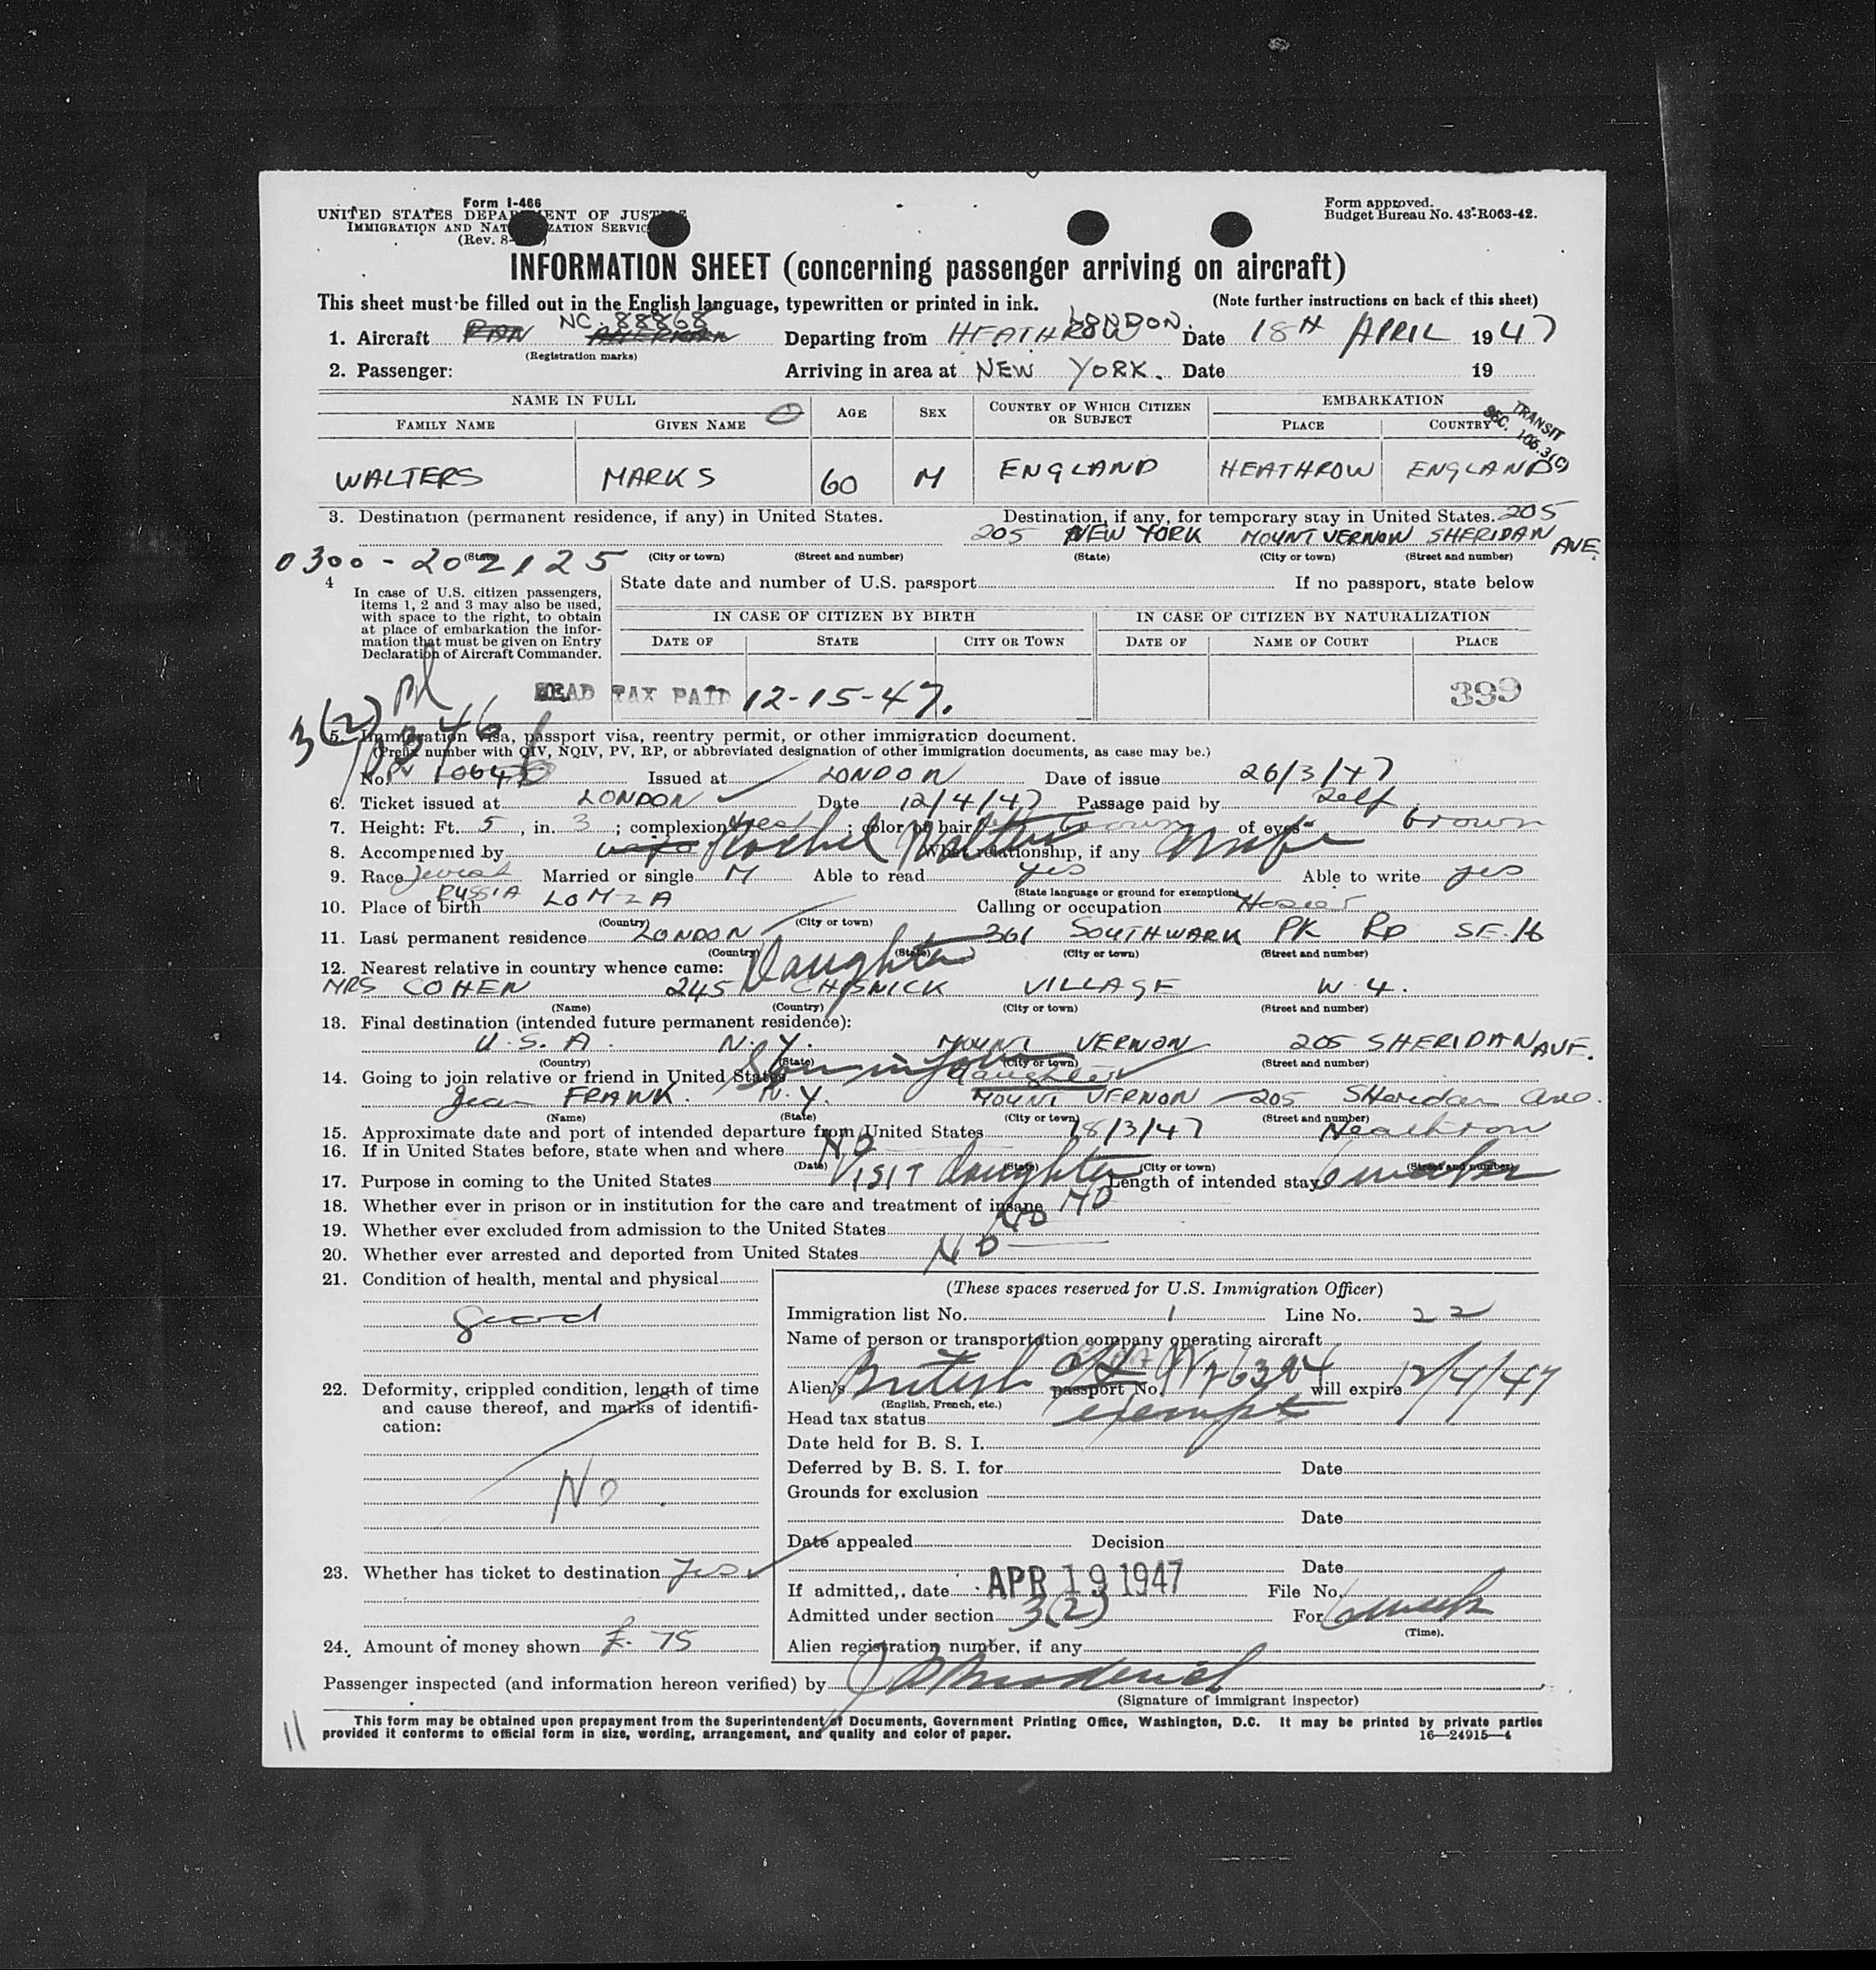 Form I-466
UNITED STATES DEPARTMENT OF JUSTICE
IMMIGRATION AND NATURALIZATION SERVICE
(Rev. 8-
Form approved.
Budget Bureau No. 43-R063-42.
INFORMATION SHEET (concerning passenger arriving on aircraft)
This sheet must be filled out in the English language, typewritten or printed in ink. (Note further instructions on back of this sheet)
1. Aircraft PAN AMERICAN NC 88868 Departing from HEATHROW LONDON. Date 18TH APRIL 1947
(Registration marks)
2. Passenger: Arriving in area at NEW YORK. Date 19
NAME IN FULL AGE SEX COUNTRY OF WHICH CITIZEN OR SUBJECT EMBARKATION
FAMILY NAME GIVEN NAME PLACE COUNTRY
TRANSIT
SEC. 106.3(C)
WALTERS MARKS 60 M ENGLAND HEATHROW ENGLAND
3. Destination (permanent residence, if any) in United States. Destination, if any, for temporary stay in United States. 205
205 NEW YORK MOUNT VERNON SHERIDAN AVE.
(State) (City or town) (Street and number) (State) (City or town) (Street and number)
0300-202125
4 In case of U.S. citizen passengers, items 1, 2 and 3 may also be used, with space to the right, to obtain at place of embarkation the information that must be given on Entry Declaration of Aircraft Commander.
State date and number of U.S. passport If no passport, state below
IN CASE OF CITIZEN BY BIRTH IN CASE OF CITIZEN BY NATURALIZATION
DATE OF STATE CITY OR TOWN DATE OF NAME OF COURT PLACE
HEAD TAX PAID 12-15-47. 399
3(2)
5. Immigration visa, passport visa, reentry permit, or other immigration document.
(Prefix number with QIV, NQIV, PV, RP, or abbreviated designation of other immigration documents, as case may be.)
No. Issued at LONDON Date of issue 26/3/47
6. Ticket issued at LONDON Date 12/4/47 Passage paid by Self
7. Height: Ft. 5, in. 3; complexion fresh; color of hair brown of eyes brown
8. Accompanied by Rachel Walters What relationship, if any Wife
9. Race Jewish Married or single M Able to read yes Able to write yes
(State language or ground for exemption)
10. Place of birth RUSSIA LOMZA Calling or occupation Hosier
(Country) (City or town)
11. Last permanent residence LONDON 361 SOUTHWARK PK RD SE.16
(Country) (State) (City or town) (Street and number)
12. Nearest relative in country whence came: Daughter
MRS COHEN 245 CHISWICK VILLAGE W.4.
(Name) (Country) (City or town) (Street and number)
13. Final destination (intended future permanent residence):
U.S.A. N.Y. MOUNT VERNON 205 SHERIDAN AVE.
(Country) (State) (City or town) (Street and number)
14. Going to join relative or friend in United States Son in law daughter
Jean FRANK. N.Y. MOUNT VERNON 205 Sheridan Ave.
(Name) (State) (City or town) (Street and number)
15. Approximate date and port of intended departure from United States 18/3/47 Heathrow
16. If in United States before, state when and where NO
(Date) (State) (City or town) (Street and number)
17. Purpose in coming to the United States VISIT daughter Length of intended stay 6 weeks
18. Whether ever in prison or in institution for the care and treatment of insane NO
19. Whether ever excluded from admission to the United States NO
20. Whether ever arrested and deported from United States NO
21. Condition of health, mental and physical
good
22. Deformity, crippled condition, length of time and cause thereof, and marks of identification:
No
23. Whether has ticket to destination yes
24. Amount of money shown £. 75
(These spaces reserved for U.S. Immigration Officer)
Immigration list No. 1 Line No. 22
Name of person or transportation company operating aircraft
Alien's British passport No. will expire 12/4/47
(English, French, etc.)
Head tax status exempt
Date held for B. S. I.
Deferred by B. S. I. for Date
Grounds for exclusion
Date
Date appealed Decision
Date
If admitted, date APR 19 1947 File No.
Admitted under section 3(2) For 6 weeks
(Time).
Alien registration number, if any
Passenger inspected (and information hereon verified) by
(Signature of immigrant inspector)
This form may be obtained upon prepayment from the Superintendent of Documents, Government Printing Office, Washington, D.C. It may be printed by private parties
provided it conforms to official form in size, wording, arrangement, and quality and color of paper. 16—24915—4
11